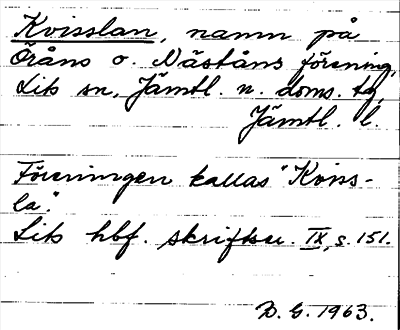 Kvisslan, namn på
Öråns o. Näståns förening,
Lits sn, Jämtl. n. doms. tg,
Jämtl. l.
Föreningen kallas "Kviss-
la".
Lits hbf. skriftser. IX, s. 151.
D. G. 1963.